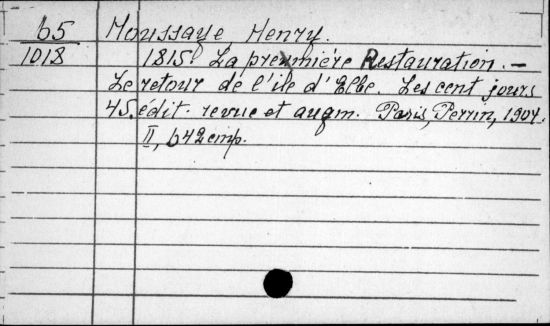 65 Moussaye, Henry.
1018 1815. La première Restauration. —
Le retour de l'ile d'Elbe. Les cent jours
45. édit. revue et augm. Paris, Perrin, 1904.
II, 642 стр.